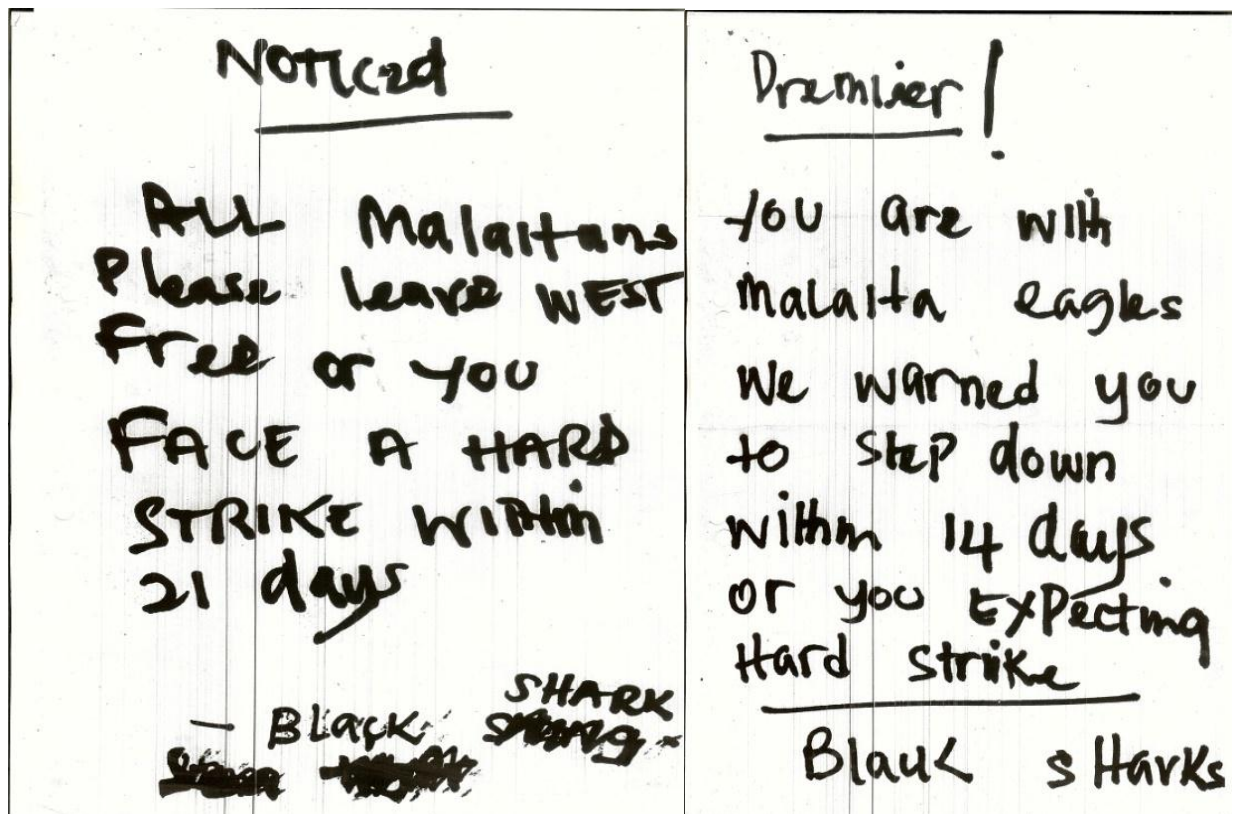 Noticed
ALL Malaitans
Please leave WEST
Free or you
FACE A HARD
STRIKE Within
21 days
SHARK
- Black
Premier!
you are with
malaita eagles
We warned you
to step down
within 14 days
or you Expecting
Hard Strike
Black sHarks